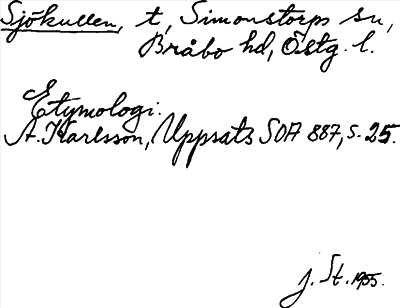 Sjökullen, t, Simonstorps sn,
Bråbo hd, Östg. l.
Etymologi.
A. Karlsson, Uppsats SOA 887, s. 25.
J. St. 1955.